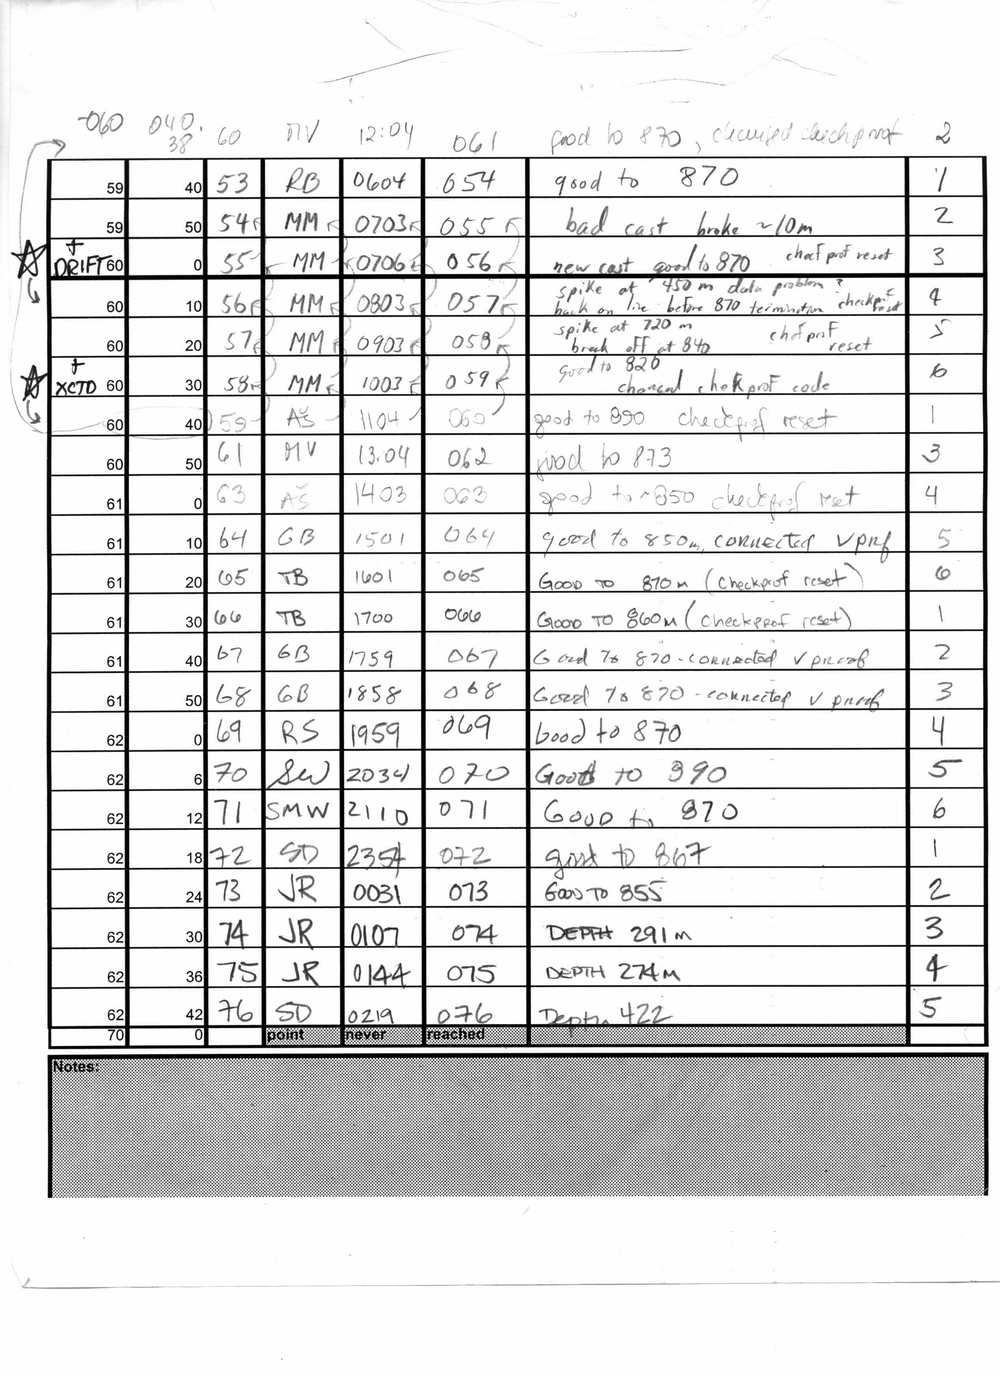 -060 040. 38 60 MV 12:04 061 good to 870, checkprof 2
59 40 53 RB 0604 054 good to 870 1
59 50 54 MM 0703 055 bad cast broke ~10m 2
+ DRIFT 60 0 55 MM 0706 056 new cast good to 870 chefprof reset 3
60 10 56 MM 0803 057 spike at 450 m data problem? 4
back on line before 870 termination checkprf reset
60 20 57 MM 0903 058 spike at 720 m chefprof 5
break off at 840 reset
+ XCTD 60 30 58 MM 1003 059 good to 820 6
changed chekprof code
60 40 59 AŠ 1104 060 good to 890 checkprof reset 1
60 50 61 MV 13:04 062 good to 873 3
61 0 63 AŠ 1403 063 good to ~850 checkprof reset 4
61 10 64 GB 1501 064 good to 850m, connected vprf 5
61 20 65 TB 1601 065 GOOD TO 870 m (checkprof reset) 6
61 30 66 TB 1700 066 GOOD TO 860M (checkprof reset) 1
61 40 67 GB 1759 067 Good To 870 - connected v proof 2
61 50 68 GB 1858 068 Good To 870 - connected v proof 3
62 0 69 RS 1959 069 good to 870 4
62 6 70 SW 2034 070 Good to 890 5
62 12 71 SMW 2110 071 Good to 870 6
62 18 72 SD 2354 072 good to 867 1
62 24 73 JR 0031 073 GOOD TO 855 2
62 30 74 JR 0107 074 DEPTH 291 M 3
62 36 75 JR 0144 075 DEPTH 274 M 4
62 42 76 SD 0219 076 Depth 422 5
70 0 point never reached
Notes: